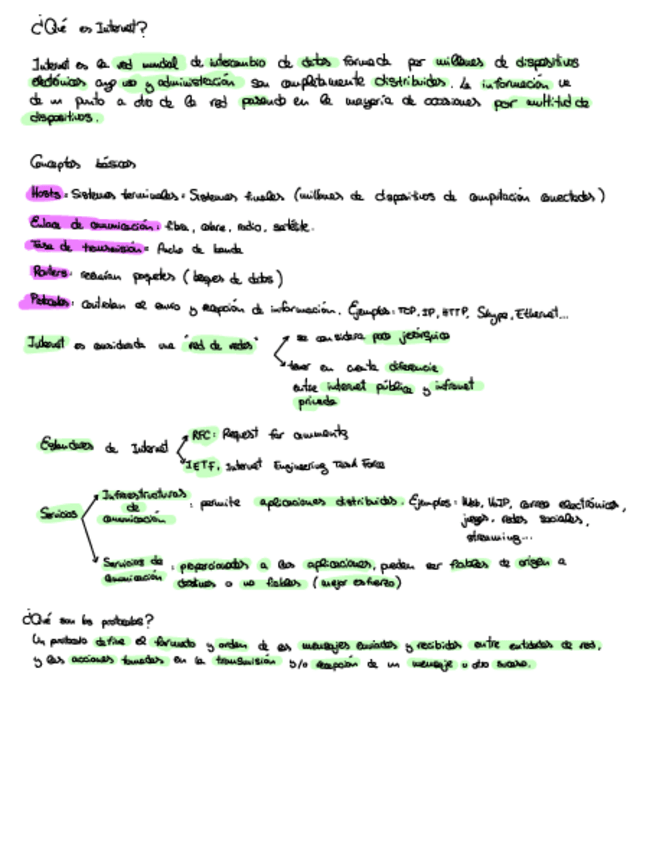 ¿Qué es Internet?
Internet es la red mundial de intercambio de datos formada por millones de dispositivos
electrónicos cuyo uso y administración son completamente distribuidos. La información va
de un punto a otro de la red pasando en la mayoría de ocasiones por multitud de
dispositivos.
Conceptos básicos
Hosts = Sistemas terminales = Sistemas finales (millones de dispositivos de computación conectados)
Enlace de comunicación: fibra, cobre, radio, satélite.
Tasa de transmisión = Ancho de banda
Routers: reenvían paquetes (bloques de datos)
Protocolos: controlan el envío y recepción de información. Ejemplos: TCP, IP, HTTP, Skype, Ethernet...
Internet es considerada una "red de redes"
se considera poco jerárquica
tener en cuenta diferencia
entre internet pública y intranet
privada
Estándares de Internet
RFC: Request for comments
IETF, Internet Engineering Task Force
Servicios
Infraestructuras
de
comunicación
: permite aplicaciones distribuidas. Ejemplos: Web, VoIP, correo electrónicos,
juegos, redes sociales,
streaming...
Servicios de
comunicación
: proporcionados a las aplicaciones, pueden ser fiables de origen a
destinos o no fiables (mejor esfuerzo)
¿Qué son los protocolos?
Un protocolo define el formato y orden de los mensajes enviados y recibidos entre entidades de red,
y las acciones tomadas en la transmisión y/o recepción de un mensaje u otro suceso.